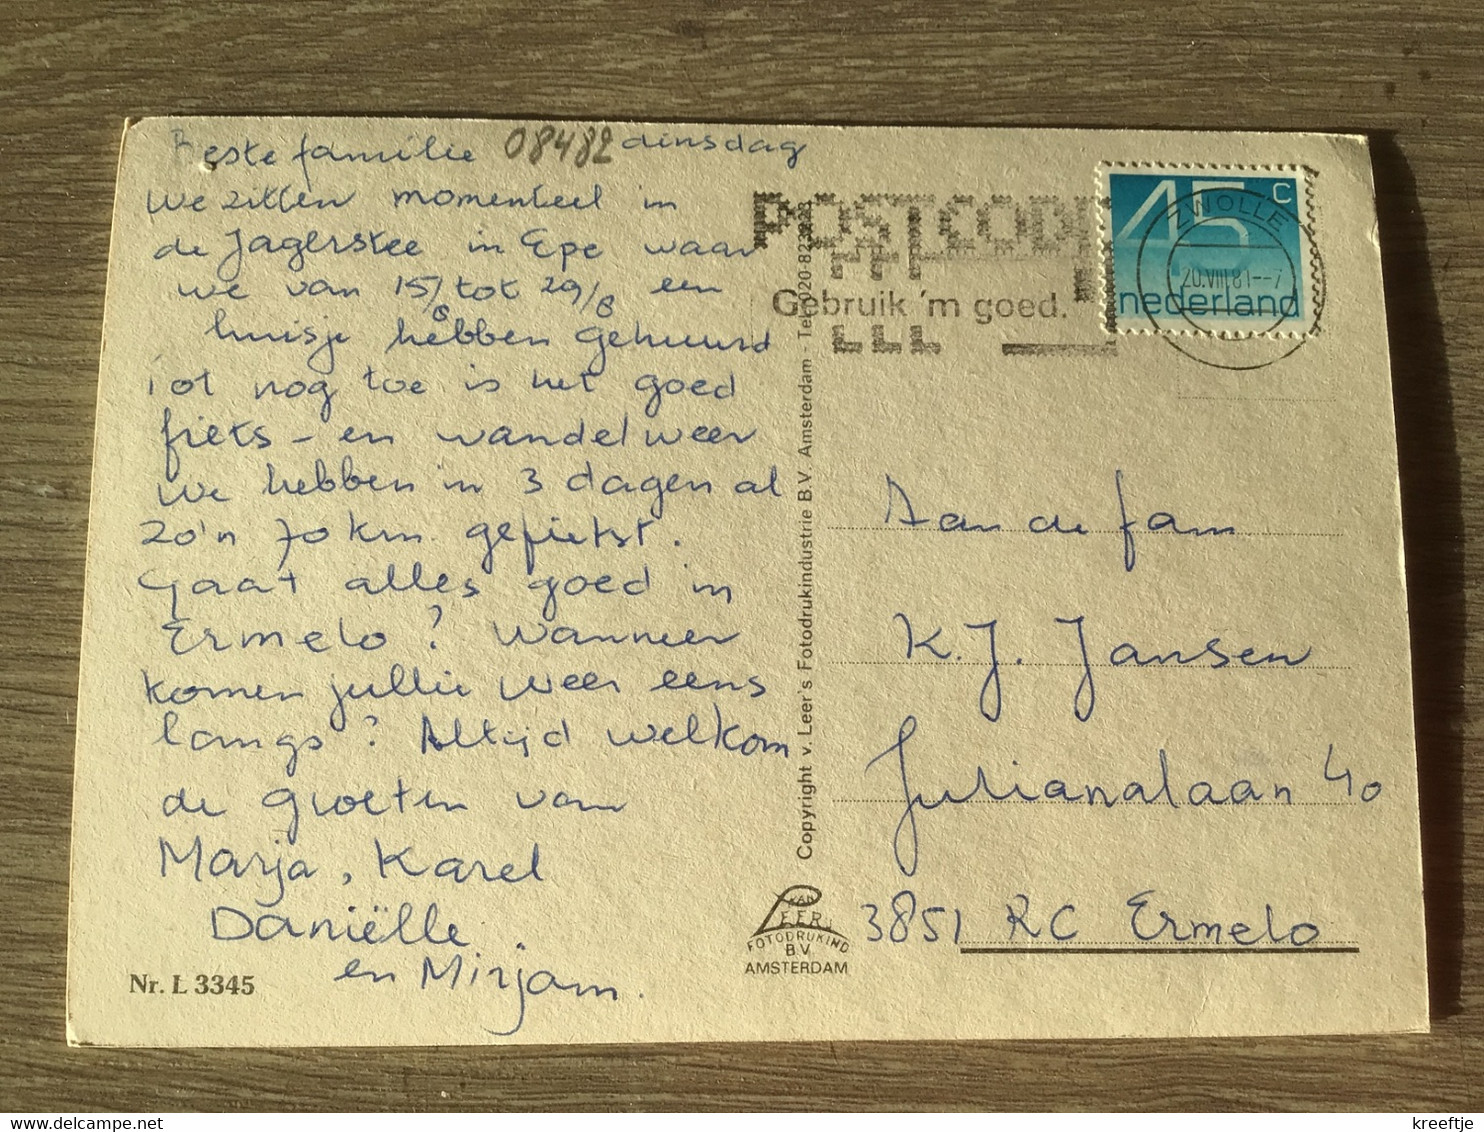 Beste familie 08482 dinsdag
We zitten momenteel in
de Jagerstee in Epe waar
we van 15/8 tot 29/8 een
huisje hebben gehuurd
Tot nog toe is het goed
fiets- en wandelweer
We hebben in 3 dagen al
zo'n 70 km. gefietst.
Gaat alles goed in
Ermelo? Wanneer
komen jullie weer eens
langs? Altijd welkom
de groeten van
Marja, Karel
Daniëlle,
en Mirjam.
Nr. L 3345
Copyright v. Leer's Fotodrukindustrie B.V. Amsterdam - Tel. 020-82
VAN
LEER
FOTODRUKIND
B.V.
AMSTERDAM
POSTCODE
Gebruik 'm goed.
45 c
nederland
ZWOLLE
20.VIII.81--7
Aan de fam
K.J. Jansen
Julianalaan 40
3851 RC Ermelo
kreeftje